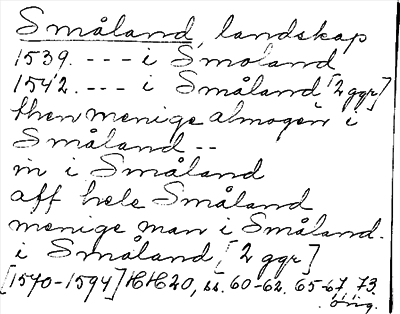 Småland, landskap
1539. --- i Smoland
1542. --- i Småland [2 ggr]
then menige almogen i
Småland --
in i Småland
aff hele Småland
menige man i Småland.
i Småland, [2 ggr]
[1570-1594] HH 20, ss. 60-62. 65-67, 73
orig.